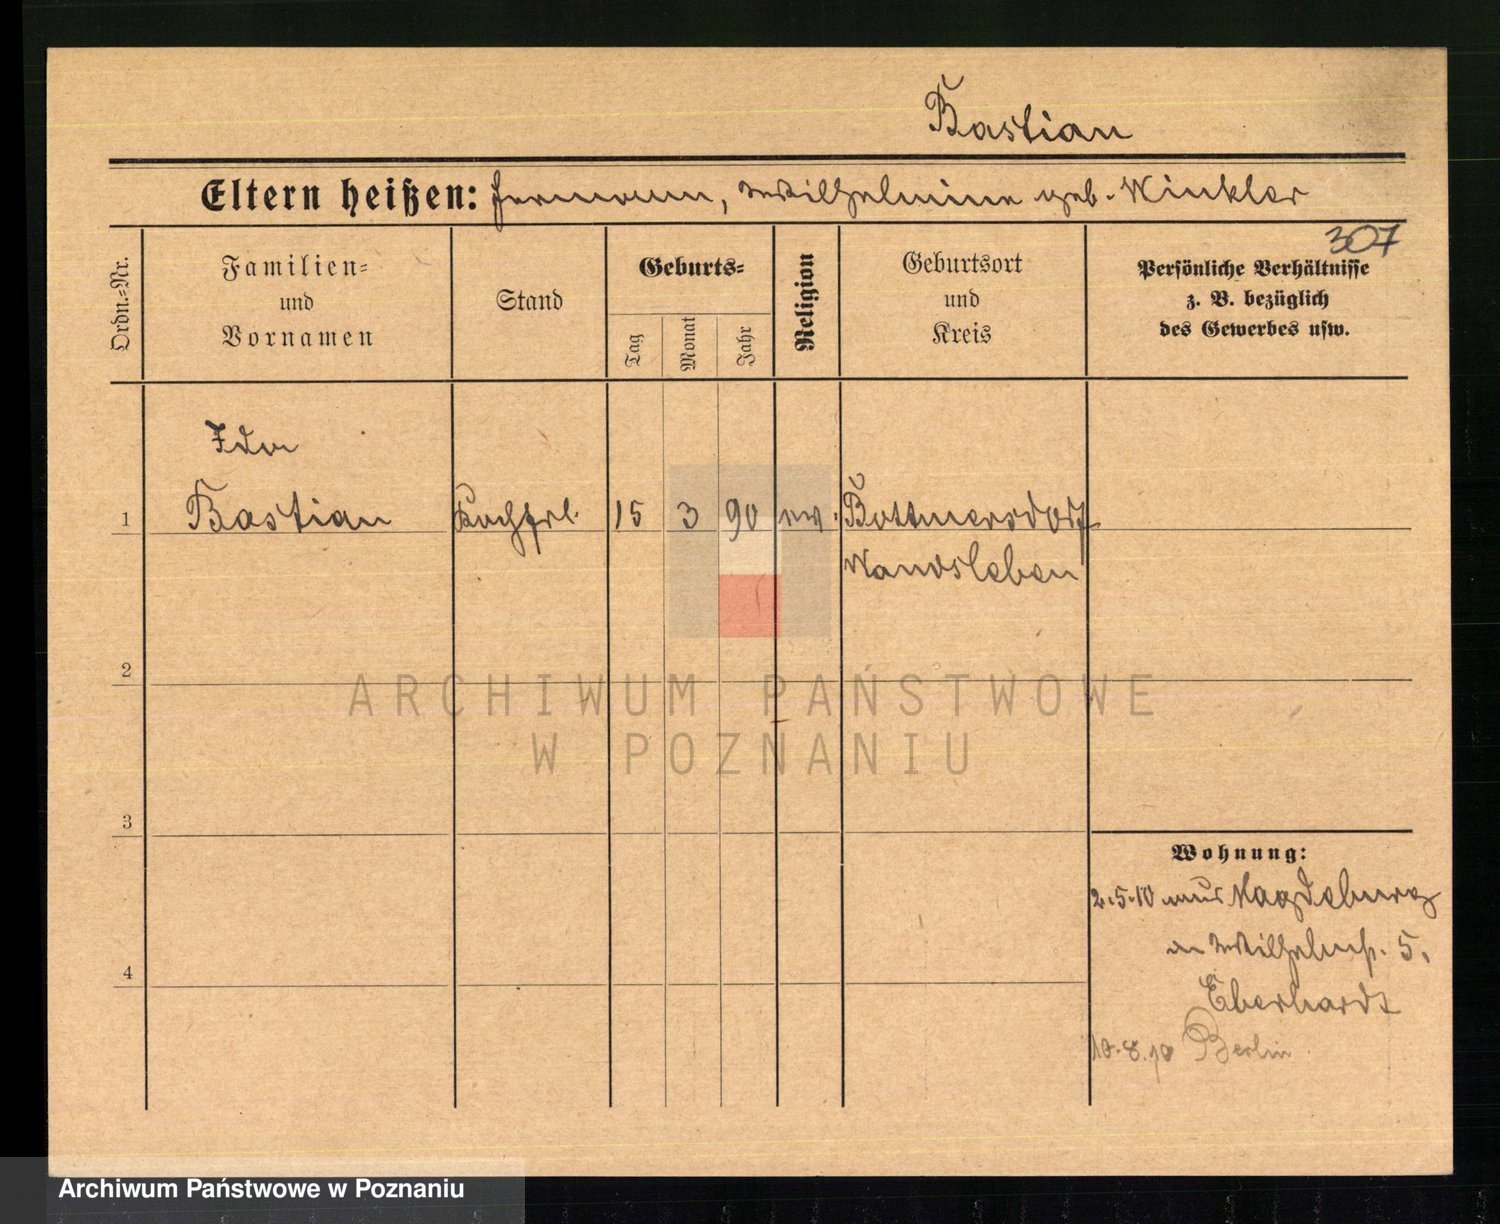 Bastian
Eltern heißen: Hermann, Wilhelmine geb. Winkler
307
Ordn.=Nr.
Familien=
und
Vornamen
Stand
Geburts=
Tag
Monat
Jahr
Religion
Geburtsort
und
Kreis
Persönliche Verhältnisse
z. B. bezüglich
des Gewerbes usw.
Ida
1 Bastian Kochfrl. 15 3 90 ev. Bottmersdorf
Wansleben
2
3
4
Wohnung:
2.5.10 aus Magdeburg
Wilhelmstr. 5.
Eberhardt
10.8.10 Berlin
ARCHIWUM PAŃSTWOWE
W POZNANIU
Archiwum Państwowe w Poznaniu